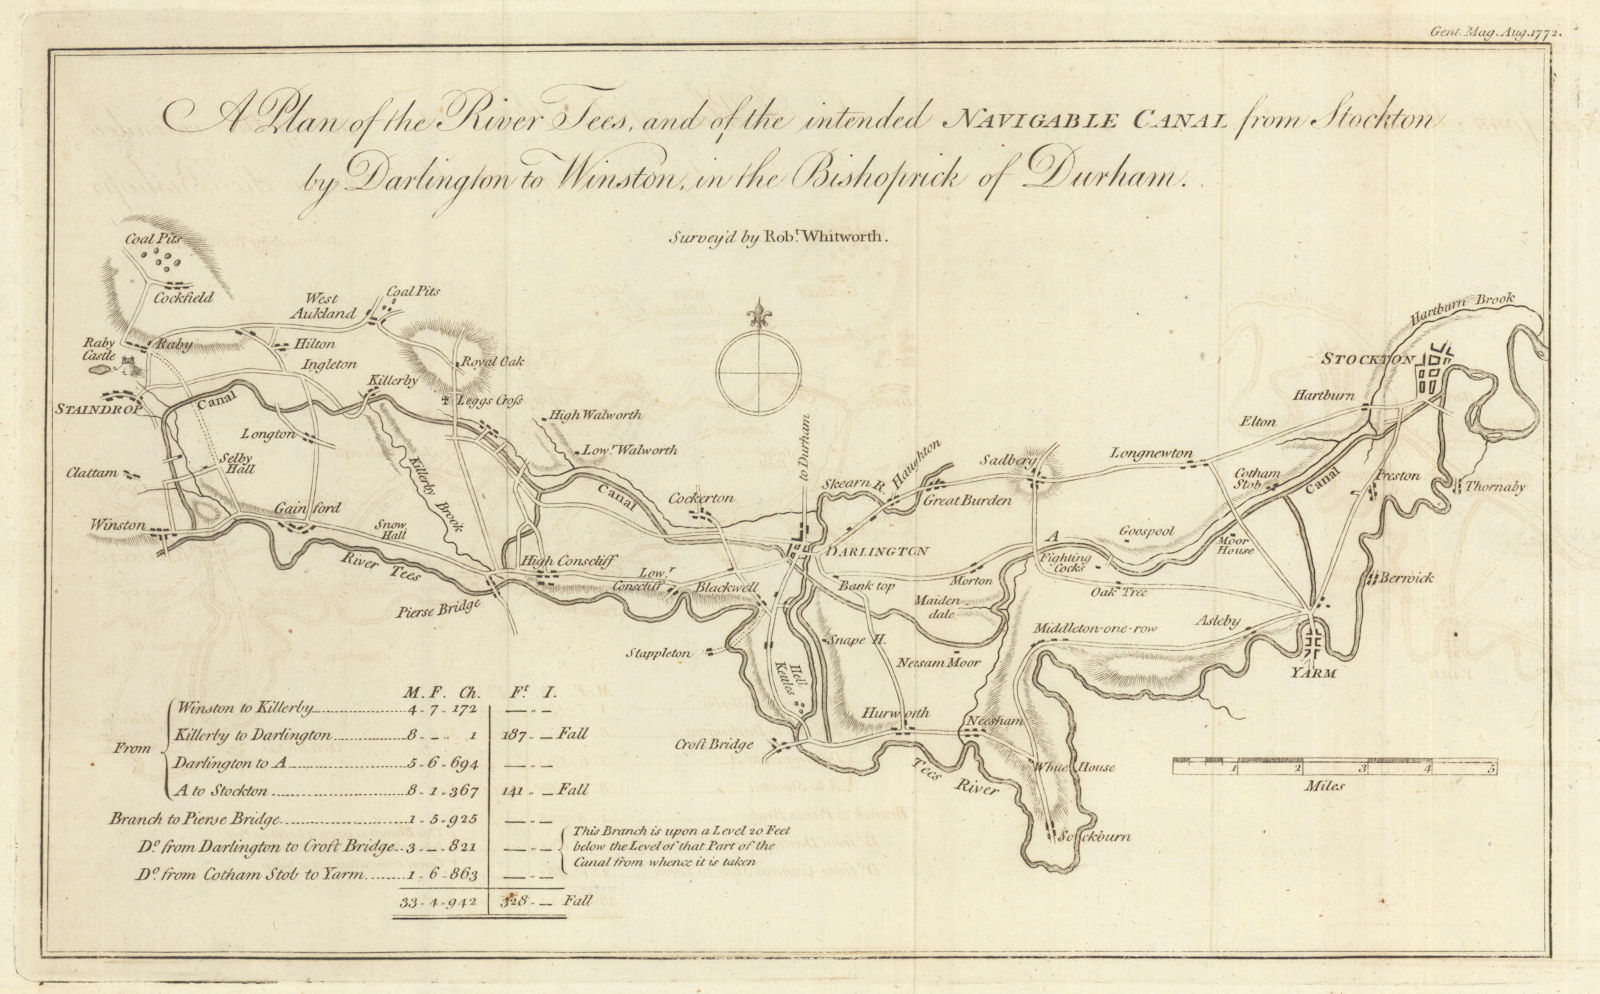 Gent. Mag. Aug. 1772.
A Plan of the River Tees, and of the intended NAVIGABLE CANAL from Stockton
by Darlington to Winston, in the Bishoprick of Durham.
Survey'd by Rob.t Whitworth.
Coal Pits
Cockfield
West
Aukland
Coal Pits
Raby
Castle
Raby
Hilton
Ingleton
Royal Oak
Killerby
Leggs Cross
STAINDROP
Canal
Longton
High Walworth
Low.r Walworth
Selby
Hall
Clattam
Killerby Brook
Winston
Gainford
Snow
Hall
River Tees
Pierse Bridge
High Conscliff
Low.r
Conscliff
Canal
Cockerton
to Durham
Skearn R.
Haughton
Great Burden
Sadberg
Longnewton
Elton
Hartburn
STOCKTON
Hartburn Brook
Cotham
Stob
Canal
Preston
Thornaby
DARLINGTON
Blackwell
Bank top
Morton
A
Fighting
Cocks
Goospool
Moor
House
Oak Tree
Berwick
Maiden
dale
Middleton-one-row
Asleby
YARM
Stappleton
Snape H.
Neesam Moor
Hell
Kettles
Hurworth
Neesham
Croft Bridge
Tees River
White House
Sockburn
1 2 3 4 5
Miles
M. F. Ch. F.t I.
From
Winston to Killerby 4 .. 7 .. 172 — .. —
Killerby to Darlington 8 .. — .. 1 187 .. — Fall
Darlington to A 5 .. 6 .. 694 — .. —
A to Stockton 8 .. 1 .. 367 141 .. — Fall
Branch to Pierse Bridge 1 .. 5 .. 925 — .. —
D.o from Darlington to Croft Bridge 3 .. — .. 821 — .. —
D.o from Cotham Stob to Yarm 1 .. 6 .. 863 — .. —
This Branch is upon a Level 20 Feet
below the Level of that Part of the
Canal from whence it is taken
33 .. 4 .. 942 328 .. — Fall